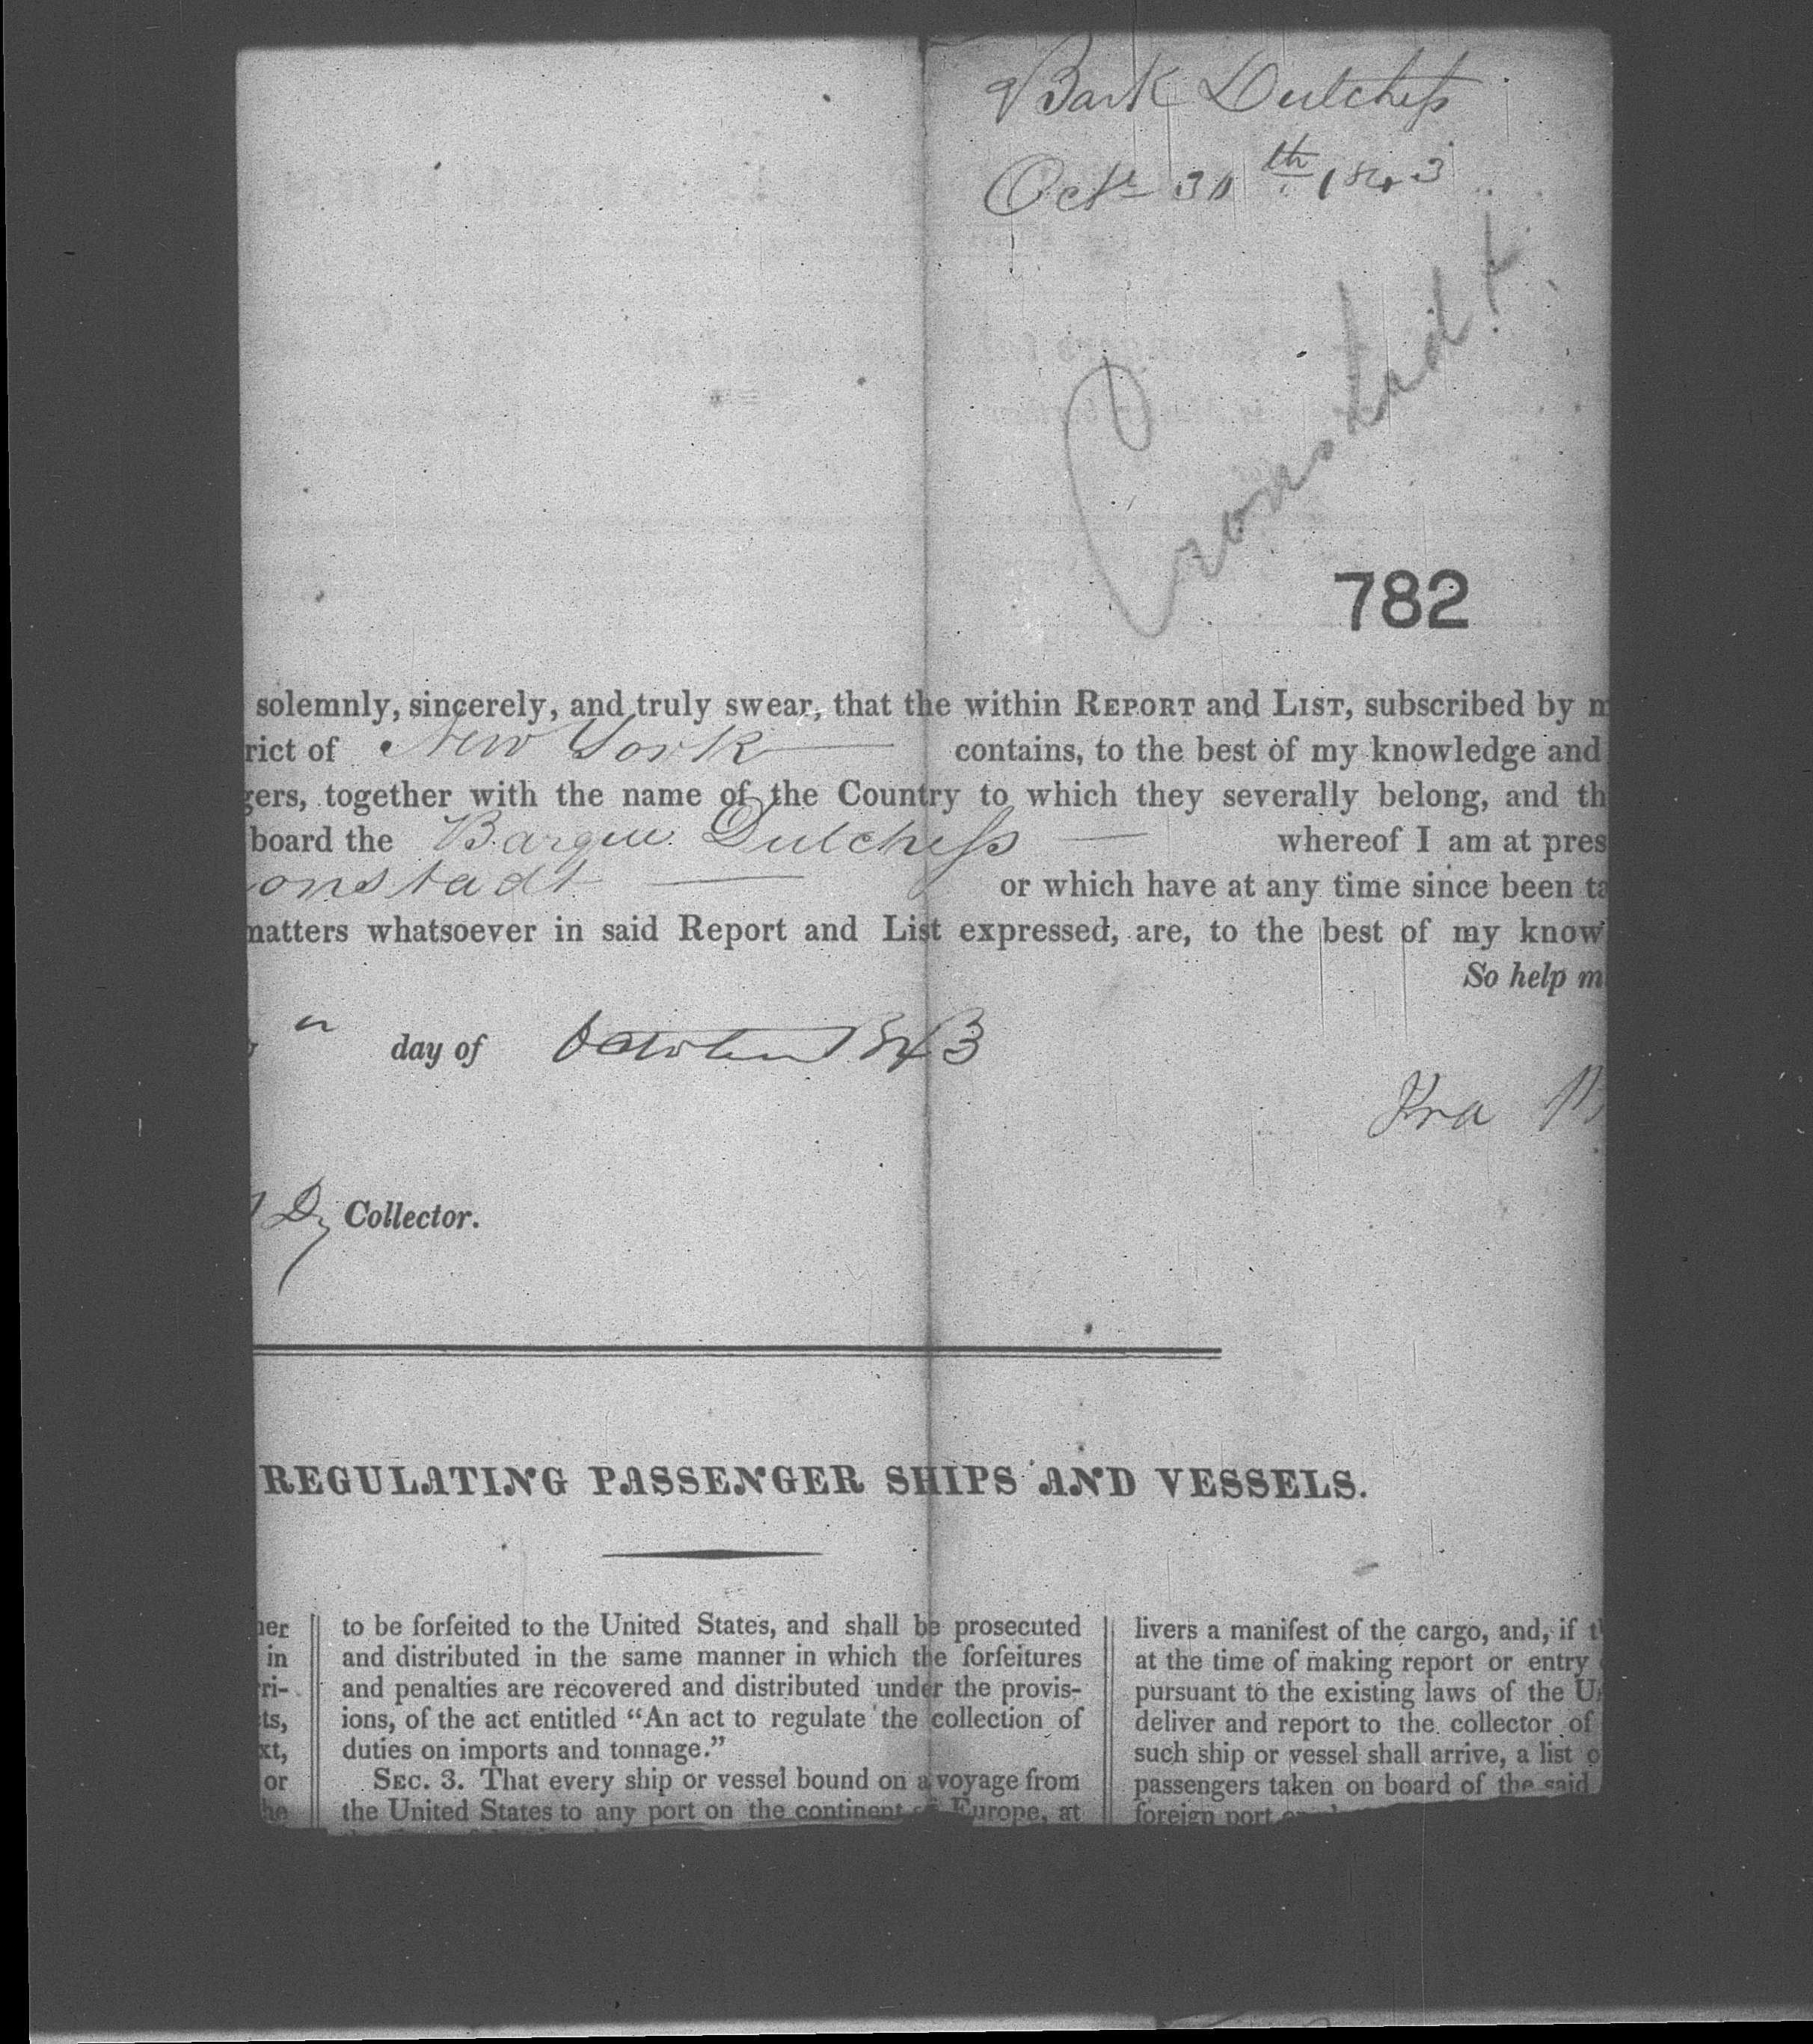 Bark Dutchess
Oct 30th 1843
Cronstadt
782
solemnly, sincerely, and truly swear, that the within REPORT and LIST, subscribed by m
rict of New York contains, to the best of my knowledge and
gers, together with the name of the Country to which they severally belong, and th
board the Barque Dutchess whereof I am at pres
onstadt or which have at any time since been ta
matters whatsoever in said Report and List expressed, are, to the best of my know
So help m
day of October 1843
Ira
Dy Collector.
REGULATING PASSENGER SHIPS AND VESSELS.
her
in
ri-
ts,
xt,
or
he
to be forfeited to the United States, and shall be prosecuted
and distributed in the same manner in which the forfeitures
and penalties are recovered and distributed under the provis-
ions, of the act entitled “An act to regulate the collection of
duties on imports and tonnage.”
SEC. 3. That every ship or vessel bound on a voyage from
the United States to any port on the continent of Europe, at
livers a manifest of the cargo, and, if t
at the time of making report or entry
pursuant to the existing laws of the U
deliver and report to the collector of
such ship or vessel shall arrive, a list o
passengers taken on board of the said
foreign port